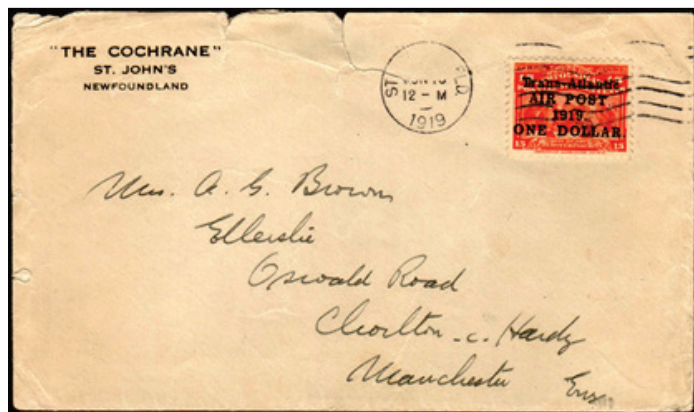 "THE COCHRANE"
ST. JOHN'S
NEWFOUNDLAND
ST
FLD
12 - M
1919
Trans-Atlantic
AIR POST
1919.
ONE DOLLAR.
15 15
Mrs. A. G. Brown
Ellerslie
Oswald Road
Chorlton-c-Hardy
Manchester